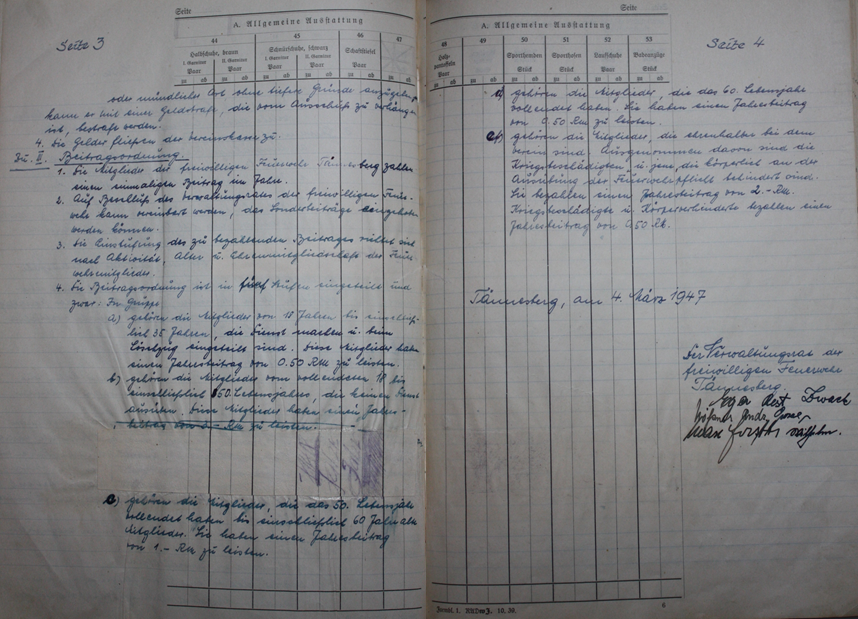 Seite
A. Allgemeine Ausstattung
Seite 3
44 45 46 47
Halbschuhe, braun Schnürschuhe, schwarz Schaftstiefel
I. Garnitur II. Garnitur I. Garnitur II. Garnitur
Paar Paar Paar
zu ab zu ab zu ab zu ab zu ab zu ab
oder mündlicher Art ohne tiefere Gründe
kann er mit einer Geldstrafe, die vom Ausschuß zu verhängen
ist, bestraft werden.
4. Die Gelder fließen der Vereinskasse zu.
Zu. II. Beitragsordnung.
1. Die Mitglieder der freiwilligen Feuerwehr Tännesberg zahlen
einen einmaligen Beitrag im Jahre.
2. Auf Beschluß des Verwaltungsrates der freiwilligen Feuer-
wehr kann vereinbart werden, das Sonderbeiträge
werden können.
3. Die Einstufung des zu bezahlenden Beitrages richtet sich
nach Aktivität, Alter u. Ehrenmitgliedschaft des Feuer-
wehrmitgliedes.
4. Die Beitragsordnung ist in fünf Stufen eingeteilt und
zwar: In Gruppe
a) gehören die Mitglieder von 18 Jahren bis einschließ-
lich 35 Jahren, die Dienst machen u. beim
Löschzug eingeteilt sind. Diese Mitglieder haben
einen Jahresbeitrag von 0.50 RM zu leisten.
b) gehören die Mitglieder vom vollendeten 18 bis
einschließlich 50. Lebensjahres, die keinen Dienst
Diese Mitglieder haben einen Jahres-
beitrag von RM zu leisten.
c) gehören die Mitglieder, die das 50. Lebensjahr
vollendet haben bis einschließlich 60 Jahr alte
Mitglieder. Sie haben einen Jahresbeitrag
von 1.- RM zu leisten.
Seite
A. Allgemeine Ausstattung
Seite 4
48 49 50 51 52 53
Sporthemden Sporthosen Laufschuhe Badeanzüge
Paar Stück Stück Paar Stück
zu ab zu ab zu ab zu ab zu ab zu ab
d) gehören die Mitglieder, die das 60. Lebensjahr
vollendet haben. Sie haben einen Jahresbeitrag
von 0.50 RM zu leisten.
e) gehören die Mitglieder, die ehrenhalber bei dem
Verein sind. Ausgenommen davon sind die
Kriegsbeschädigten u. jene, die körperlich an der
Ausübung der Feuerwehrpflicht behindert sind.
Sie bezahlen einen Jahresbeitrag von 2.- RM.
Kriegsbeschädigte u. Körperbehinderte bezahlen einen
Jahresbeitrag von 0.50 RM.
Tännesberg, am 4. März 1947
Der Verwaltungsrat der
freiwilligen Feuerwehr
Tännesberg.
6